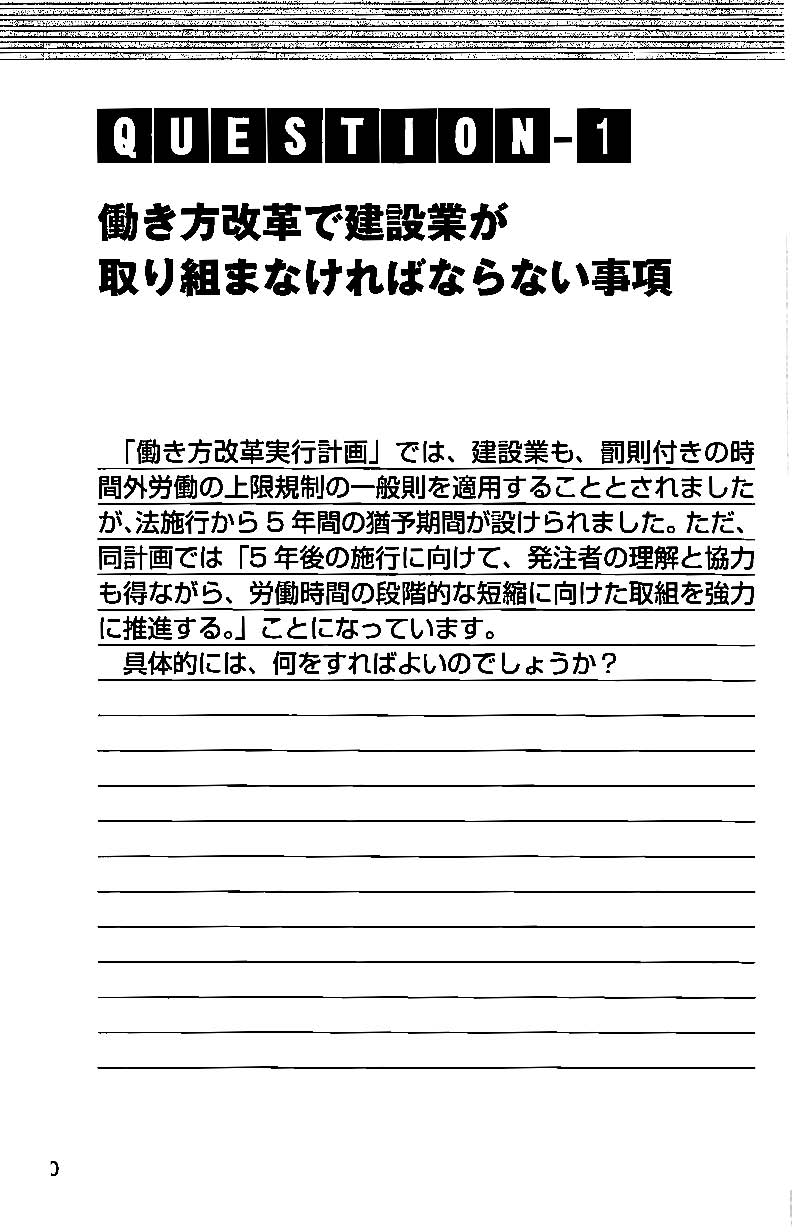 QUESTION-1
働き方改革で建設業が
取り組まなければならない事項
「働き方改革実行計画」では、建設業も、罰則付きの時
間外労働の上限規制の一般則を適用することとされました
が、法施行から5年間の猶予期間が設けられました。ただ、
同計画では「5年後の施行に向けて、発注者の理解と協力
も得ながら、労働時間の段階的な短縮に向けた取組を強力
に推進する。」ことになっています。
具体的には、何をすればよいのでしょうか?